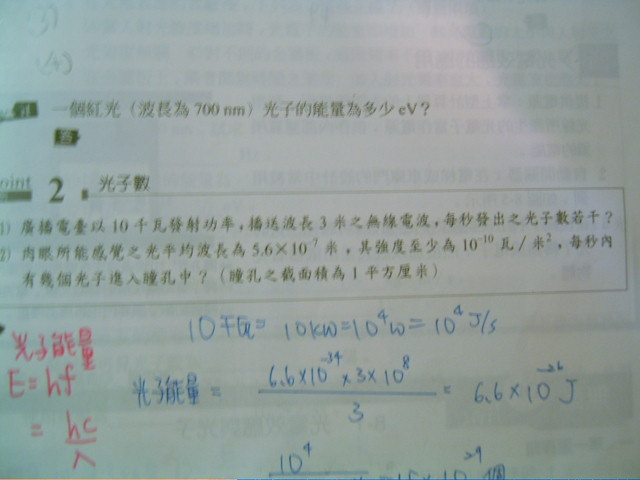 (3)
(4)
一個紅光(波長為 700 nm)光子的能量為多少 eV?
答
oint 2 光子數
1) 廣播電臺以 10 千瓦發射功率,播送波長 3 米之無線電波,每秒發出之光子數若干?
2) 肉眼所能感覺之光平均波長為 5.6×10⁻⁷ 米,其強度至少為 10⁻¹⁰ 瓦/米²,每秒內
有幾個光子進入瞳孔中?(瞳孔之截面積為 1 平方厘米)
10千瓦= 10kW=10⁴W= 10⁴ J/s
光子能量
E=hf
= hc/λ
光子能量 = 6.6×10⁻³⁴×3×10⁸ / 3 = 6.6×10⁻²⁶ J
10⁴
10²⁹ 個